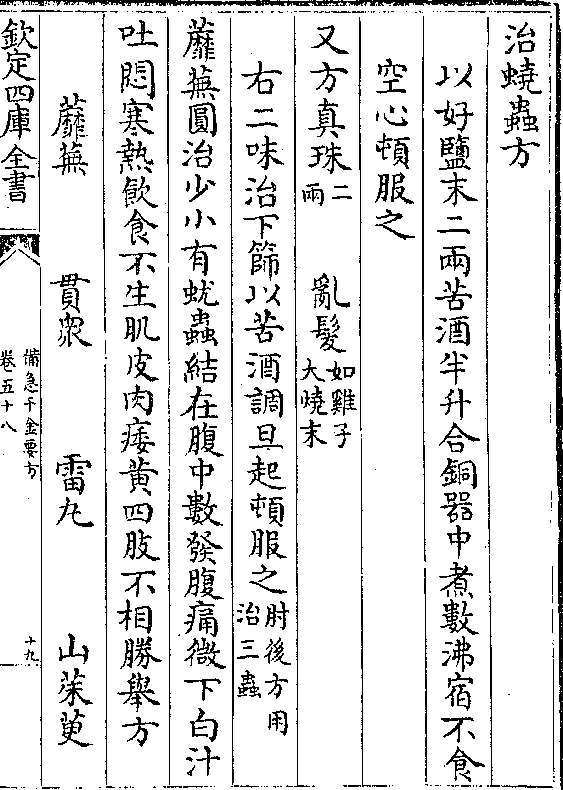 治蟯蟲方
以好鹽末二兩苦酒半升合銅器中煮數沸宿不食
空心頓服之
又方真珠二兩 亂髮如雞子大燒末
右二味治下篩以苦酒調旦起頓服之肘後方用治三蟲
蘼蕪圓治少小有蚘蟲結在腹中數發腹痛微下白汁
吐悶寒熱飲食不生肌皮肉痿黃四肢不相勝舉方
蘼蕪 貫衆 雷丸 山茱萸
欽定四庫全書
備急千金要方
卷五十八
十九